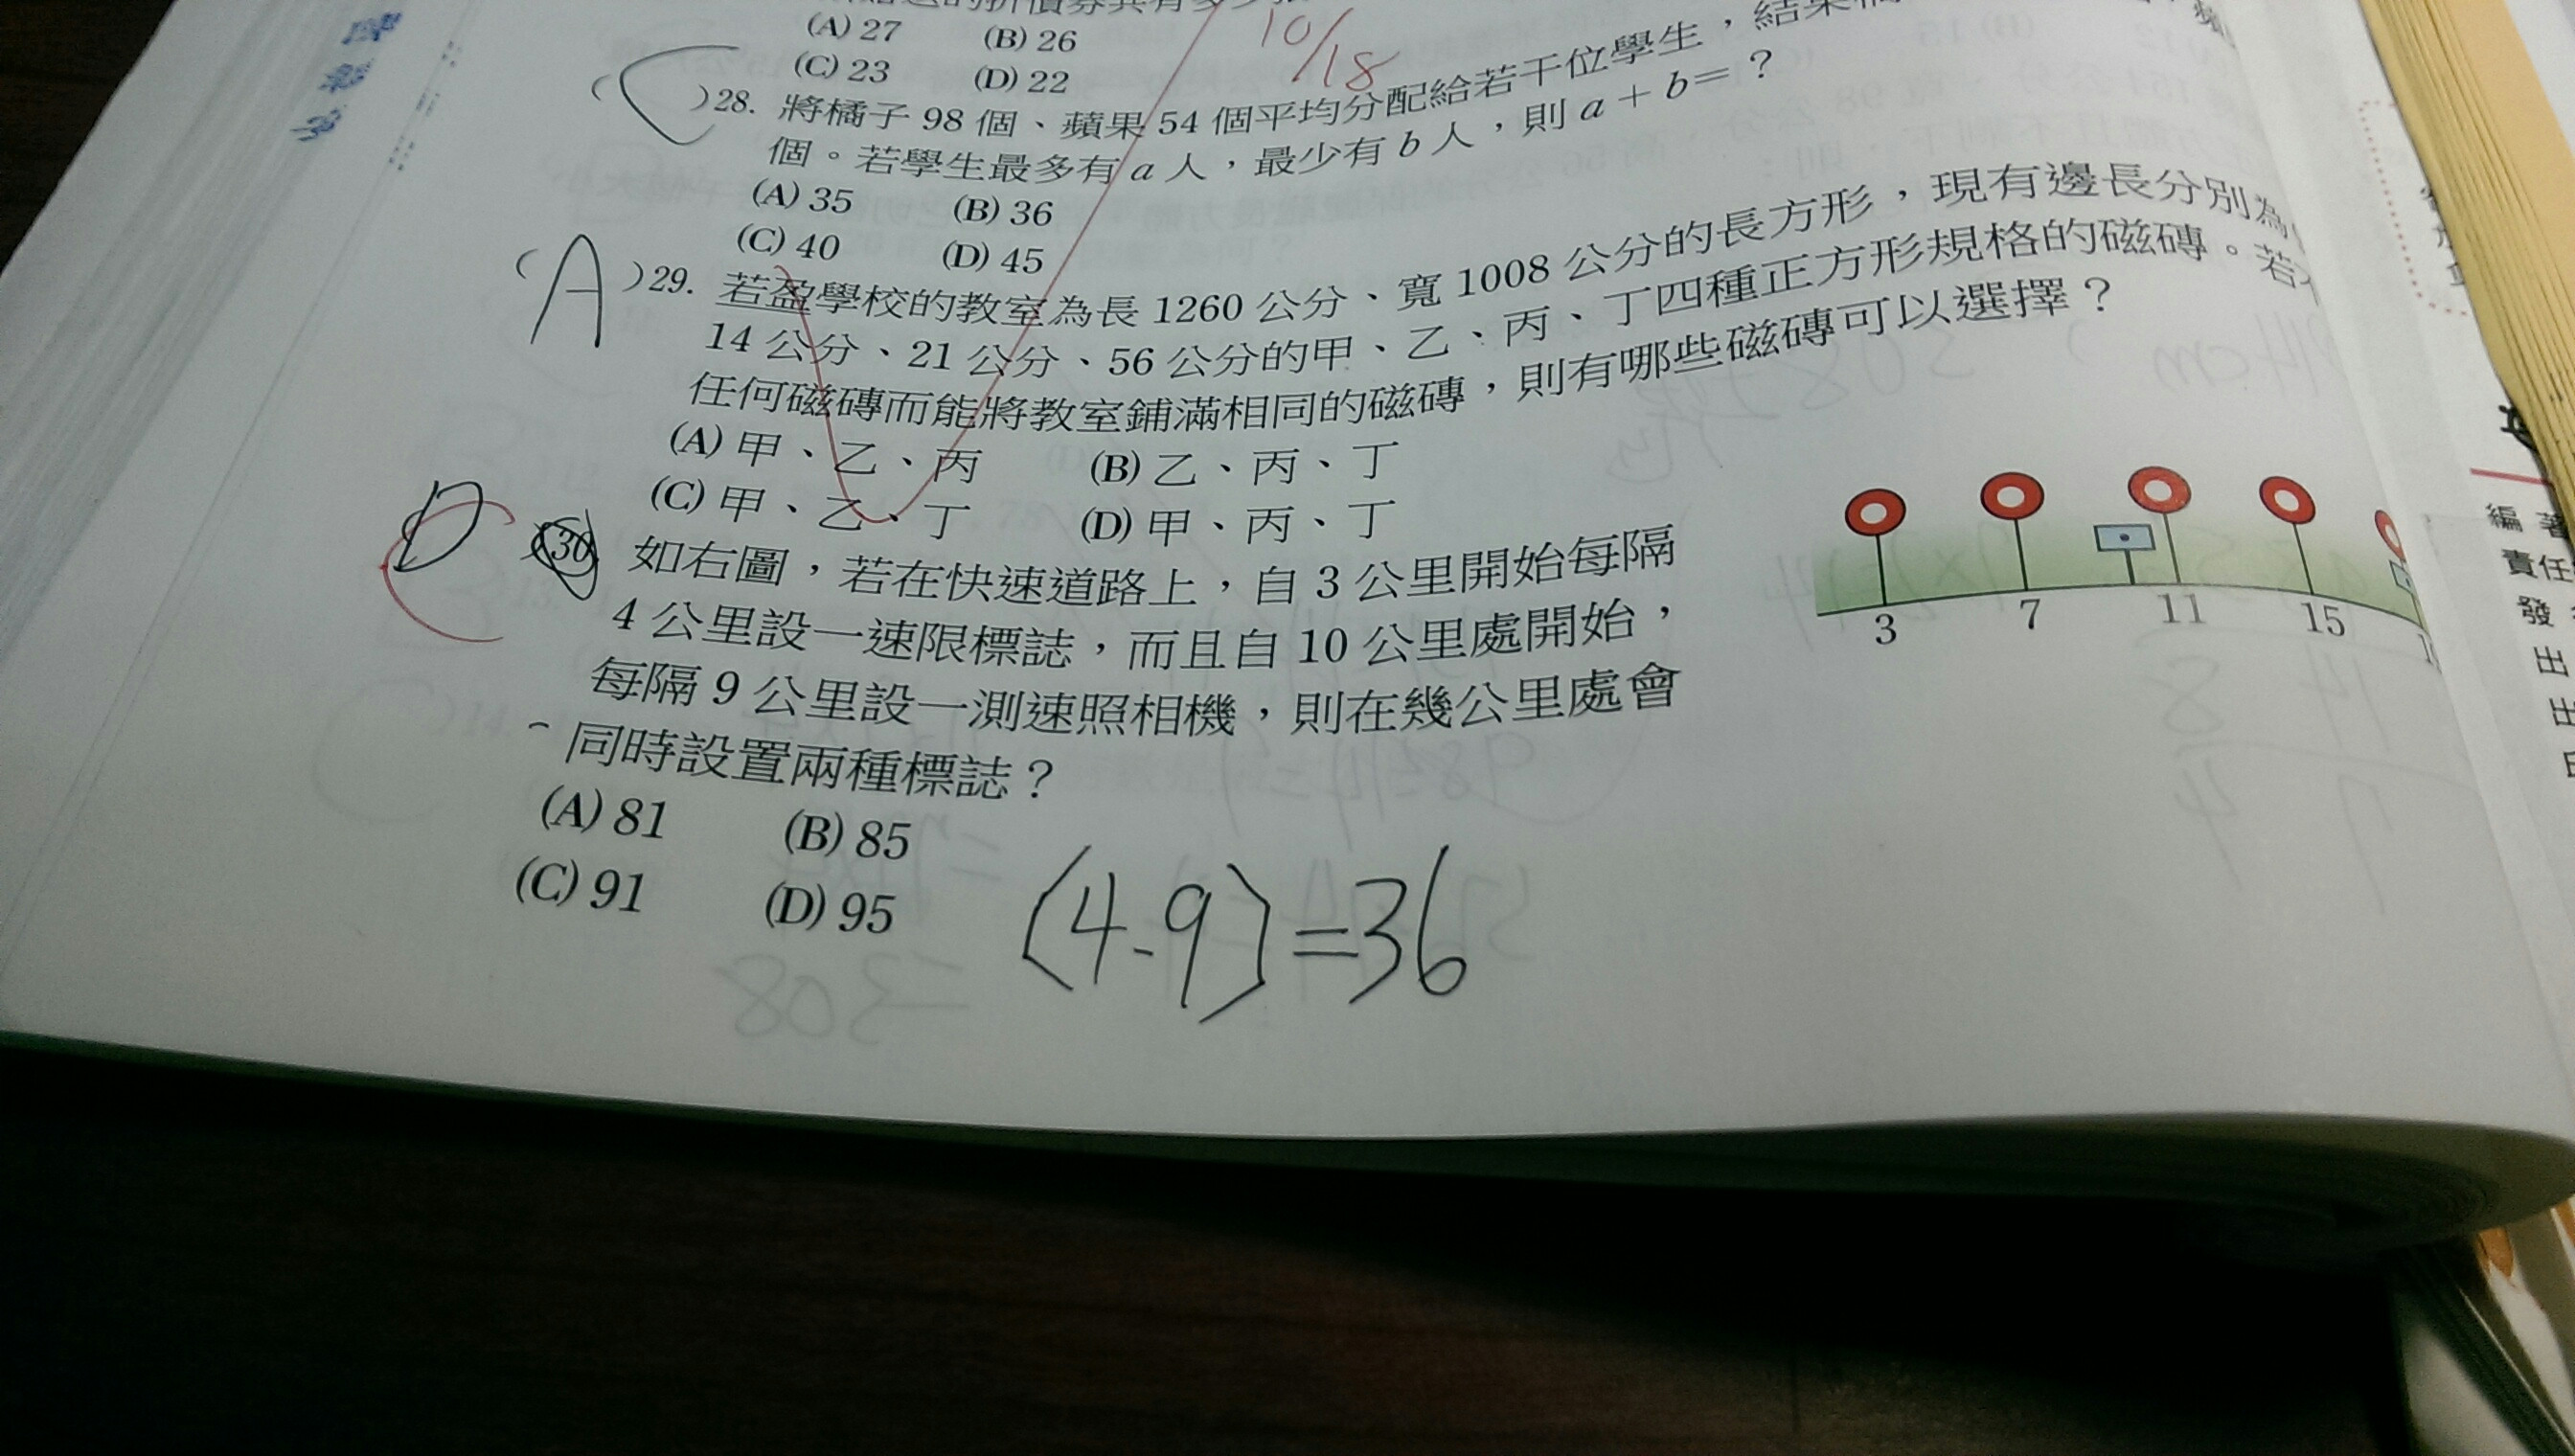 (A) 27 (B) 26
(C) 23 (D) 22
10/18
( C )28. 將橘子 98 個、蘋果 54 個平均分配給若干位學生，結果
個。若學生最多有 a 人，最少有 b 人，則 a + b = ？
(A) 35 (B) 36
(C) 40 (D) 45
( A )29. 若盈學校的教室為長 1260 公分、寬 1008 公分的長方形，現有邊長分別為
14 公分、21 公分、56 公分的甲、乙、丙、丁四種正方形規格的磁磚。若
任何磁磚而能將教室鋪滿相同的磁磚，則有哪些磁磚可以選擇？
(A) 甲、乙、丙 (B) 乙、丙、丁
(C) 甲、乙、丁 (D) 甲、丙、丁
D 30 如右圖，若在快速道路上，自 3 公里開始每隔
4 公里設一速限標誌，而且自 10 公里處開始，
每隔 9 公里設一測速照相機，則在幾公里處會
同時設置兩種標誌？
(A) 81 (B) 85
(C) 91 (D) 95
3 7 11 15
(4-9)=36
編著
責任
發
出
出